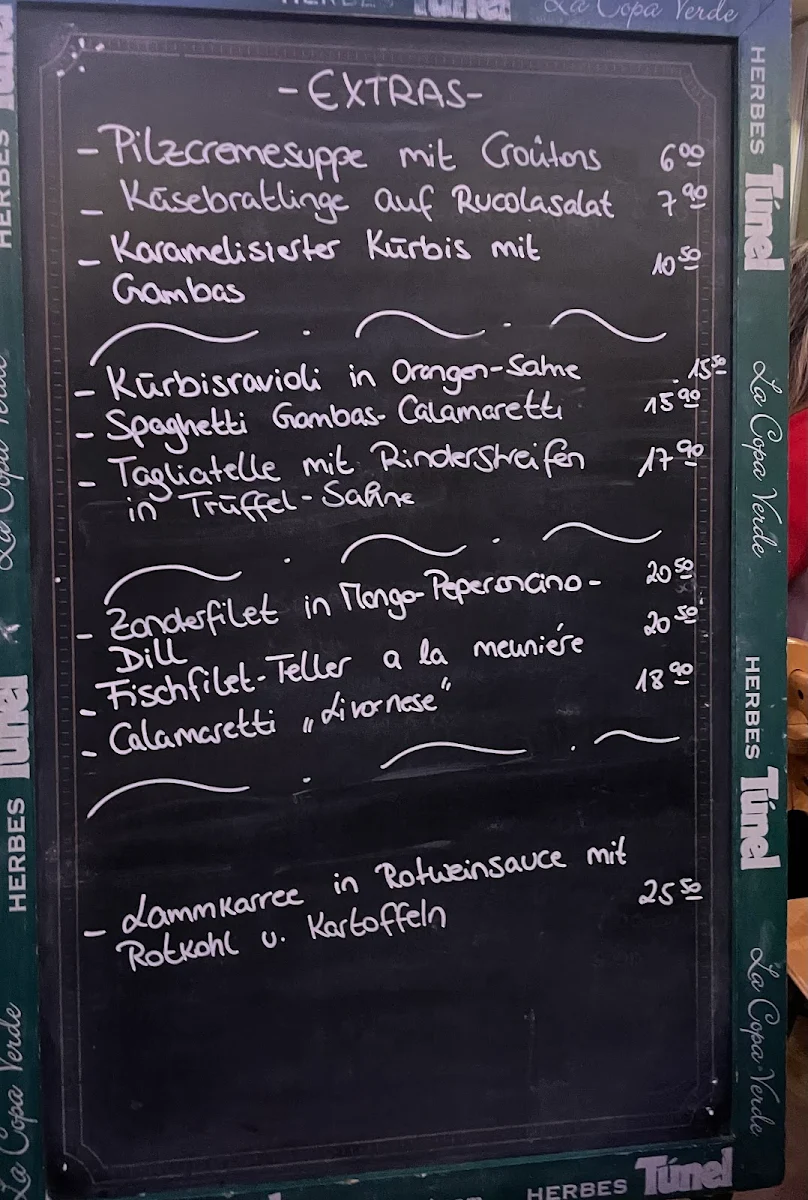 HERBES Túnel La Copa Verde
- EXTRAS -
- Pilzcremesuppe mit Croûtons 6.00
- Käsebratlinge auf Rucolasalat 7.90
- Karamelisierter Kürbis mit 10.50
Gambas
- Kürbisravioli in Orangen-Sahne 15.50
- Spaghetti Gambas-Calamaretti 15.90
- Tagliatelle mit Rinderstreifen 17.90
in Trüffel-Sahne
- Zanderfilet in Mango-Peperoncino- 20.50
Dill
- Fischfilet-Teller a la meuniére 20.50
- Calamaretti „Livornese" 18.90
- Lammkarree in Rotweinsauce mit 25.50
Rotkohl u. Kartoffeln
HERBES Túnel
La Copa Verde
HERBES Túnel
La Copa Verde
HERBES Túnel
HERBES Túnel
La Copa Verde
HERBES Túnel
La Copa Verde